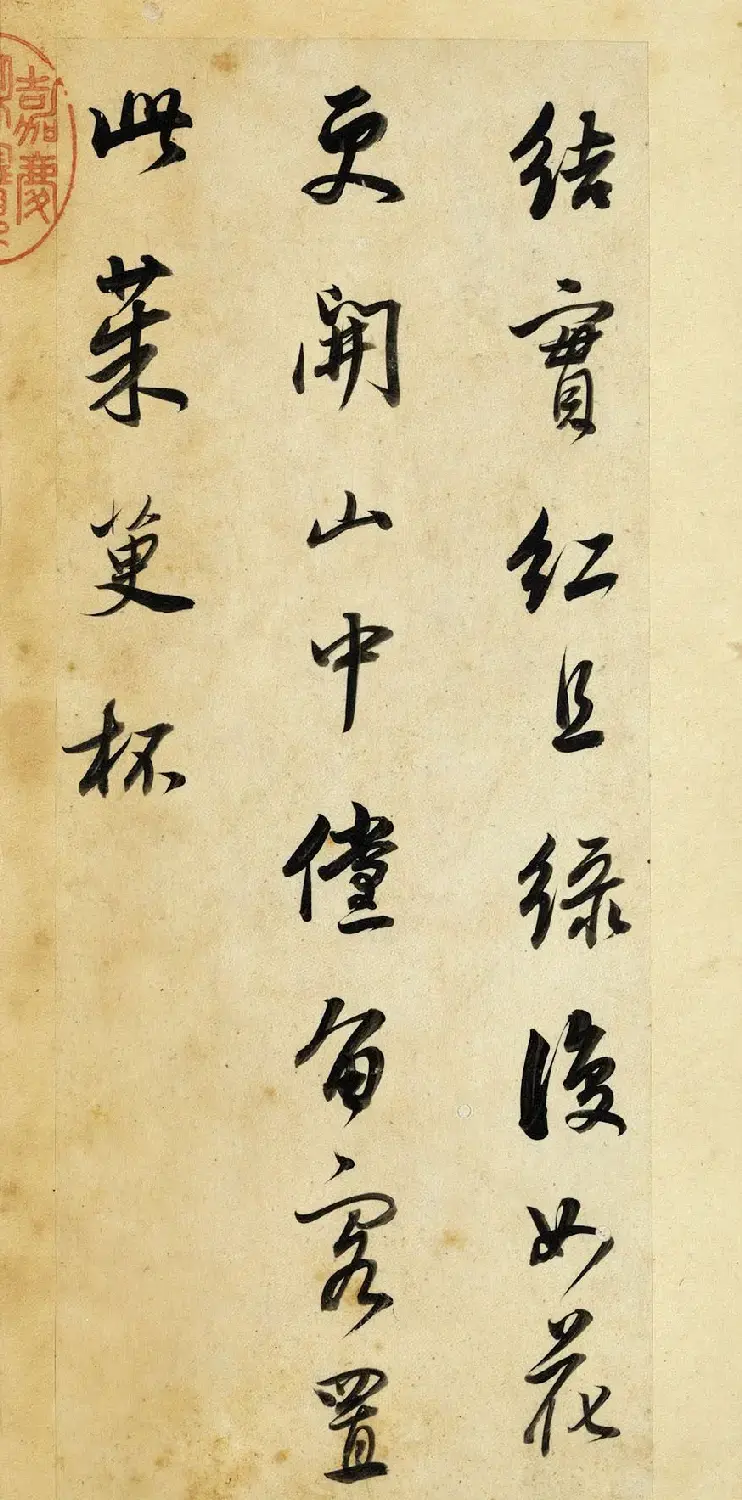 結實紅且綠復如花
更開山中儻留客置
此茱萸杯
嘉慶